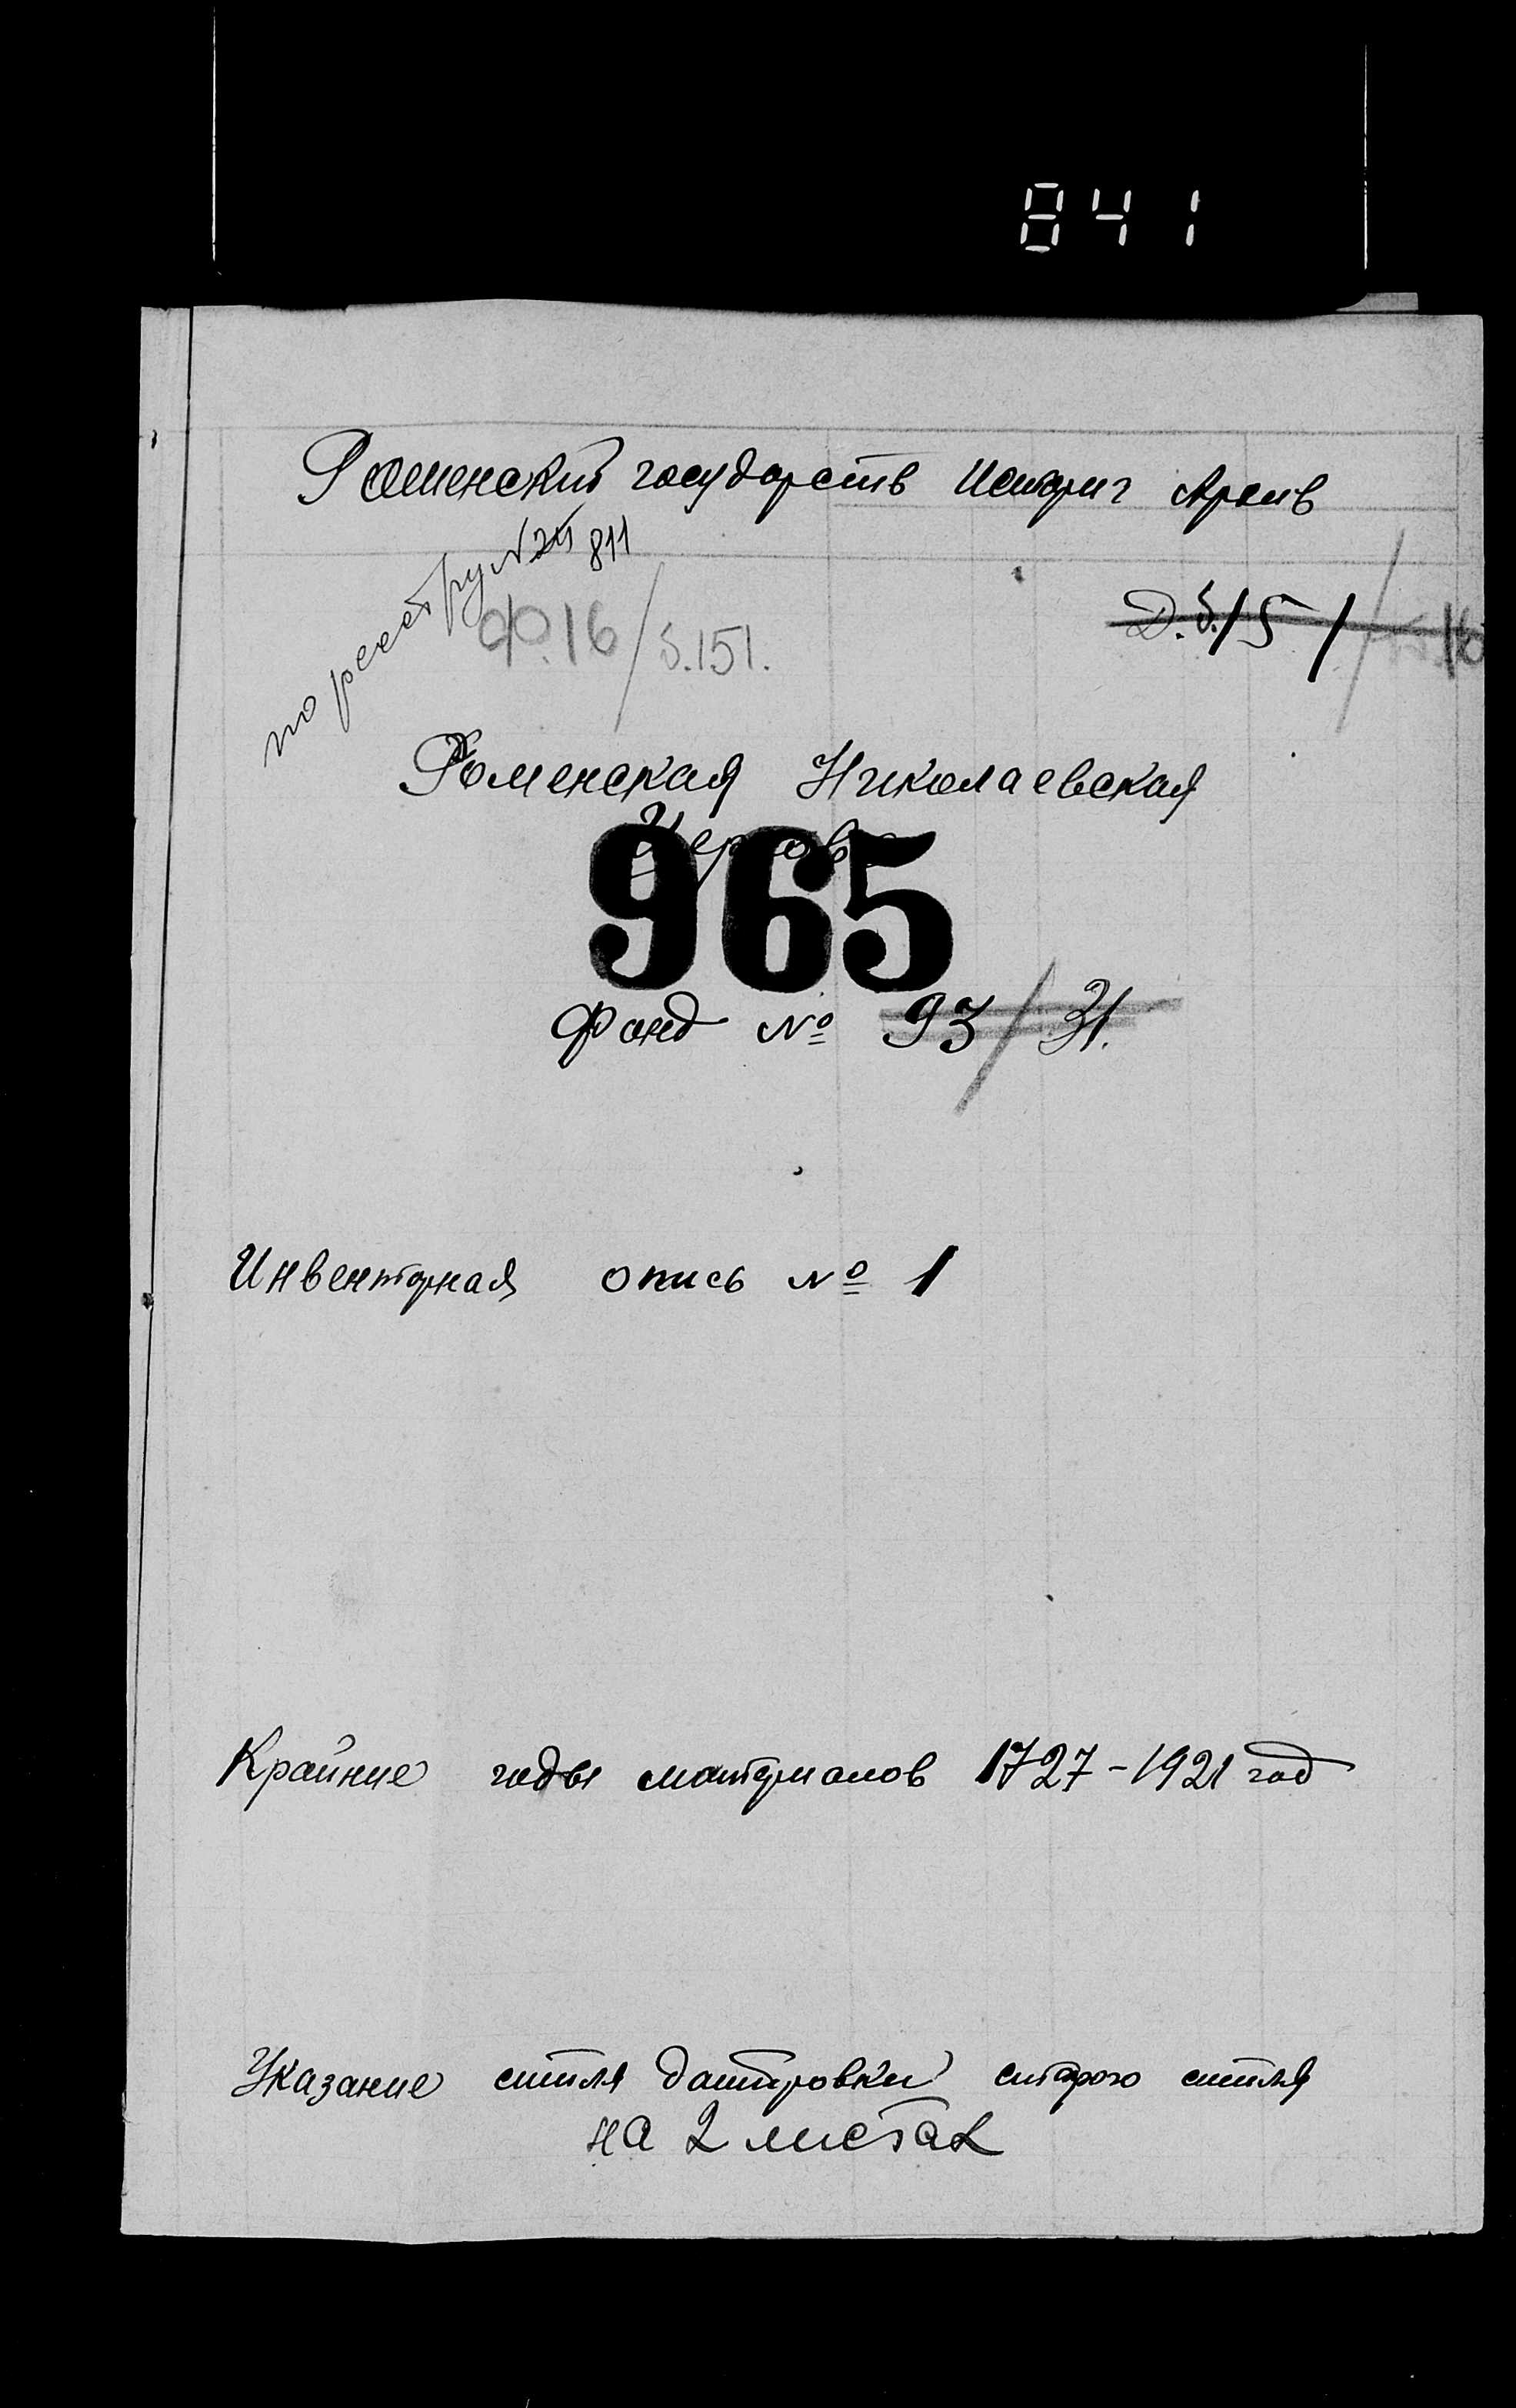 841
Роменский государств Историч Архив
по реестру N 811
Ф.16/д.151.
Д.д./5/
Роменская Николаевская
Церковь
965
Фонд № 93/31.
Инвентарная опись № 1
Крайние годы материалов 1727-1921 год
Указание стиля датировки старого стиля
на 2 листах